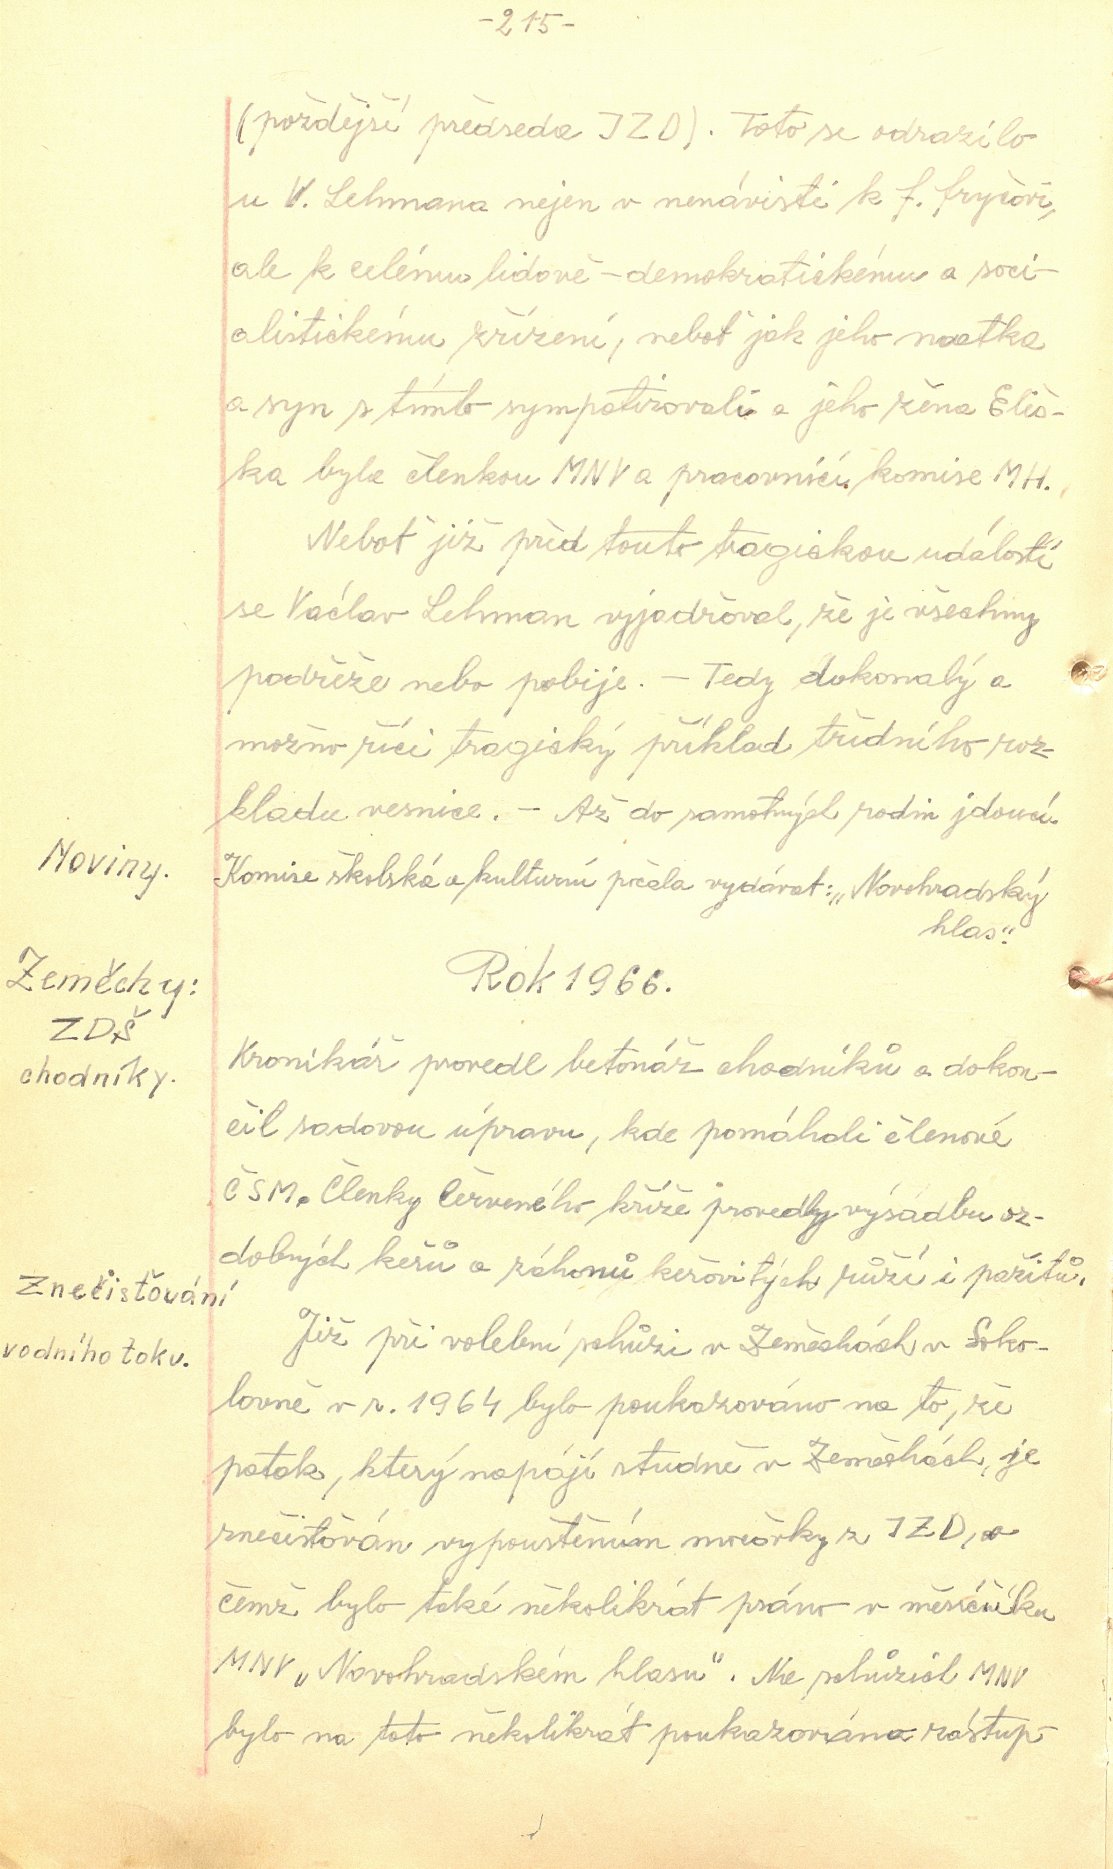 -215-
(pozdější předseda JZD). Toto se odrazilo
u V. Lehmana nejen v nenávisti k f. fryčovi,
ale k celému lidově-demokratickému a soci-
alistickému zřízení, neboť jak jeho matka
a syn s tímto sympatizovali a jeho žena Eliš-
ka byla členkou MNV a pracovnicí komise MH.
Neboť již před touto tragickou událostí
se Václav Lehman vyjadřoval, že je všechny
podřeže nebo pobije. - Tedy dokonalý a
možno říci tragický příklad třídního roz-
kladu vesnice. - Až do samotných rodin jdoucí.
Noviny.
Komise školská a kulturní počala vydávat: „Novohradský
hlas".
Rok 1966.
Zeměchy:
ZDŠ
chodníky.
Kronikář provedl betonáž chodníků a dokon-
čil sadovou úpravu, kde pomáhali členové
ČSM. Členky Červeného kříže provedly výsadbu oz-
dobných keřů a záhonů keřovitých růží i pažitů.
Znečisťování
vodního toku.
Již při volební schůzi v Zeměchách v Soko-
lovně v r. 1964 bylo poukazováno na to, že
potok, který napájí studně v Zeměchách, je
znečisťován vypouštěním močůvky z JZD, o
čemž bylo také několikrát psáno v měsíčníku
MNV „Novohradském hlasu". Na schůzích MNV
bylo na toto několikrát poukazováno zástup-